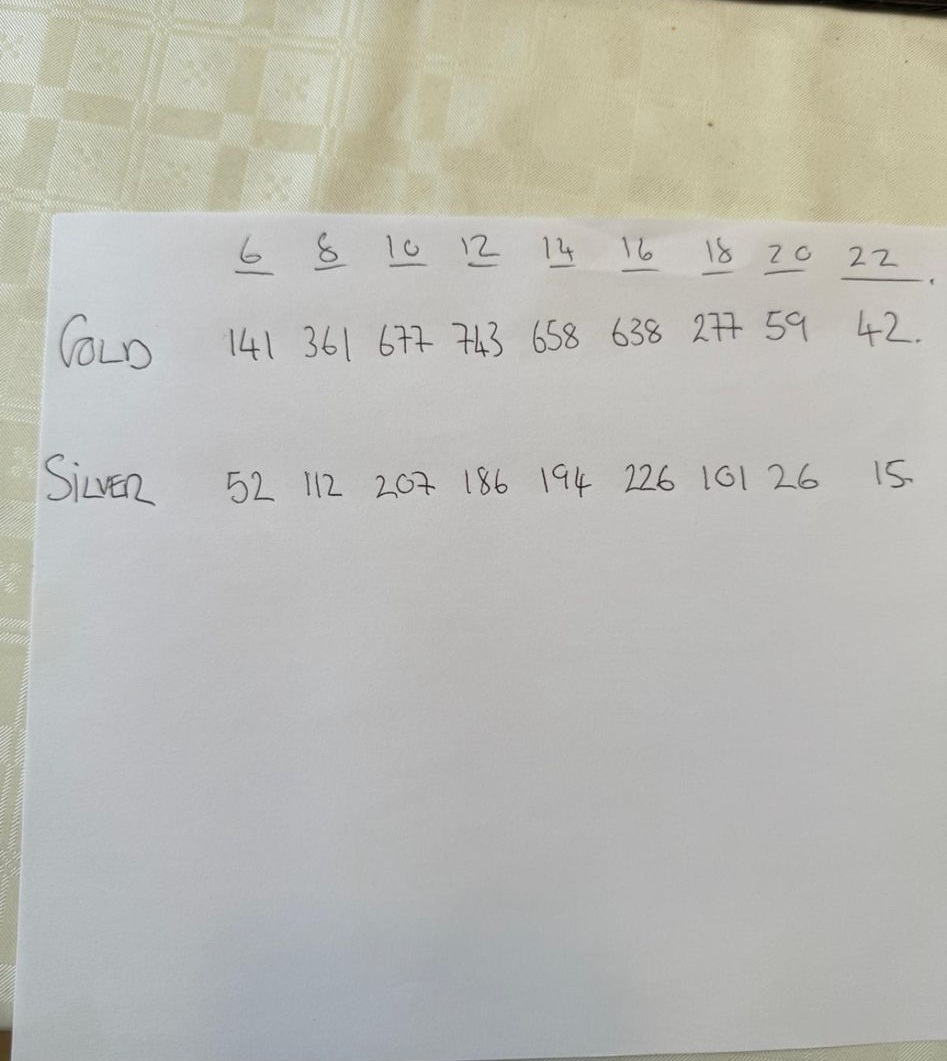 6 8 10 12 14 16 18 20 22.
GOLD 141 361 677 743 658 638 277 59 42.
SILVER 52 112 207 186 194 226 101 26 15.